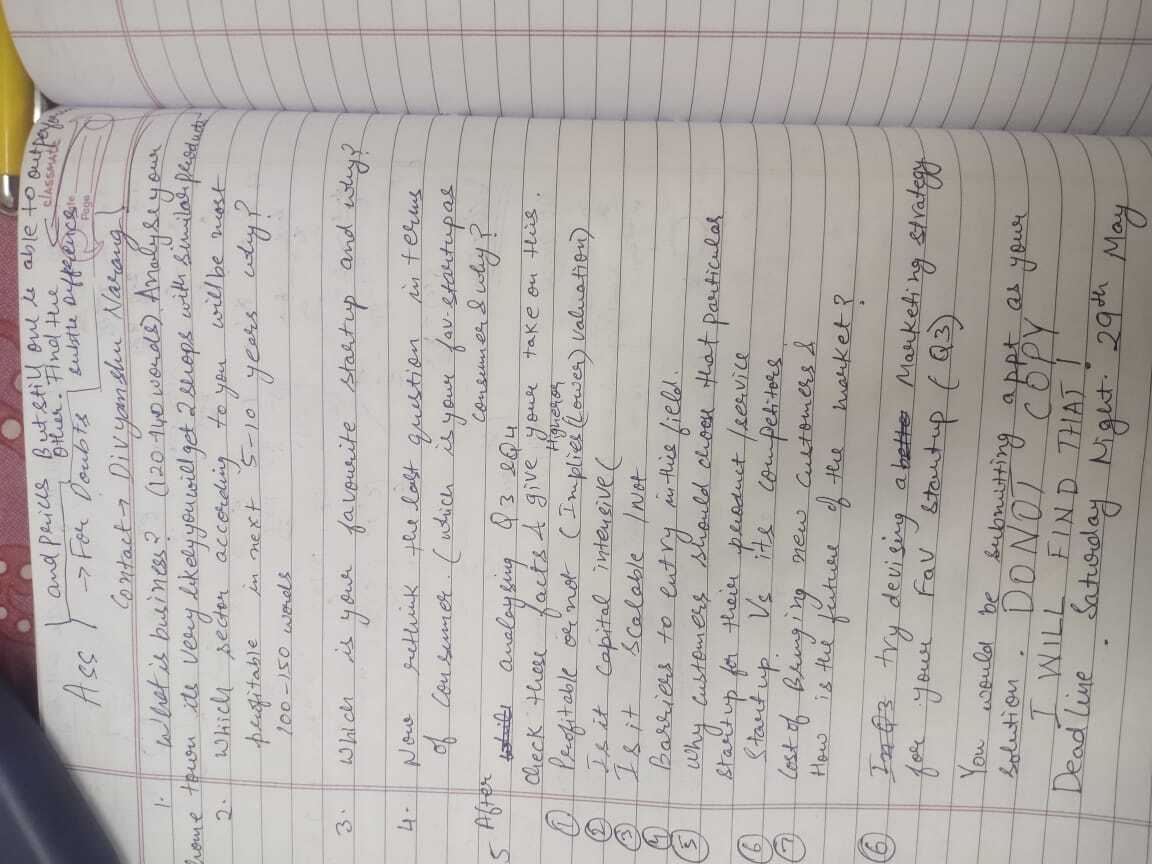 and perils But still one is able to outperform
other. Find the
subtle differences
classmate
Date
Page
Ass → For Doubts
Contact → Divyanshu Narang
1. What is business? (120-140 words) Analyse your
home town its very likely you will get 2 shops with similar products
2. Which sector according to you will be most
profitable in next 5-10 years why?
100-150 words
3. Which is your favorite startup and why?
4. Now rethink the last question in terms
of consumer. (which is your fav. startup as
consumer & why?
5 After analaysing Q3 & Q4
check these facts & give your take on this.
① Profitable or not (Implies Higher or (lower) valuation)
② Is it capital intensive (
③ Is it scalable /not
④ Barriers to entry in this field.
⑤ Why customers should choose that particular
startup for their product/service
⑥ Startup Vs its competitors
⑦ Cost of Bringing new customers &
How is the future of the market?
⑥ In Q3 try devising a Marketing strategy
for your Fav startup (Q3)
You would be submitting a ppt as your
solution. DO NOT COPY
I WILL FIND THAT!
Deadline. Saturday Night. 29th May